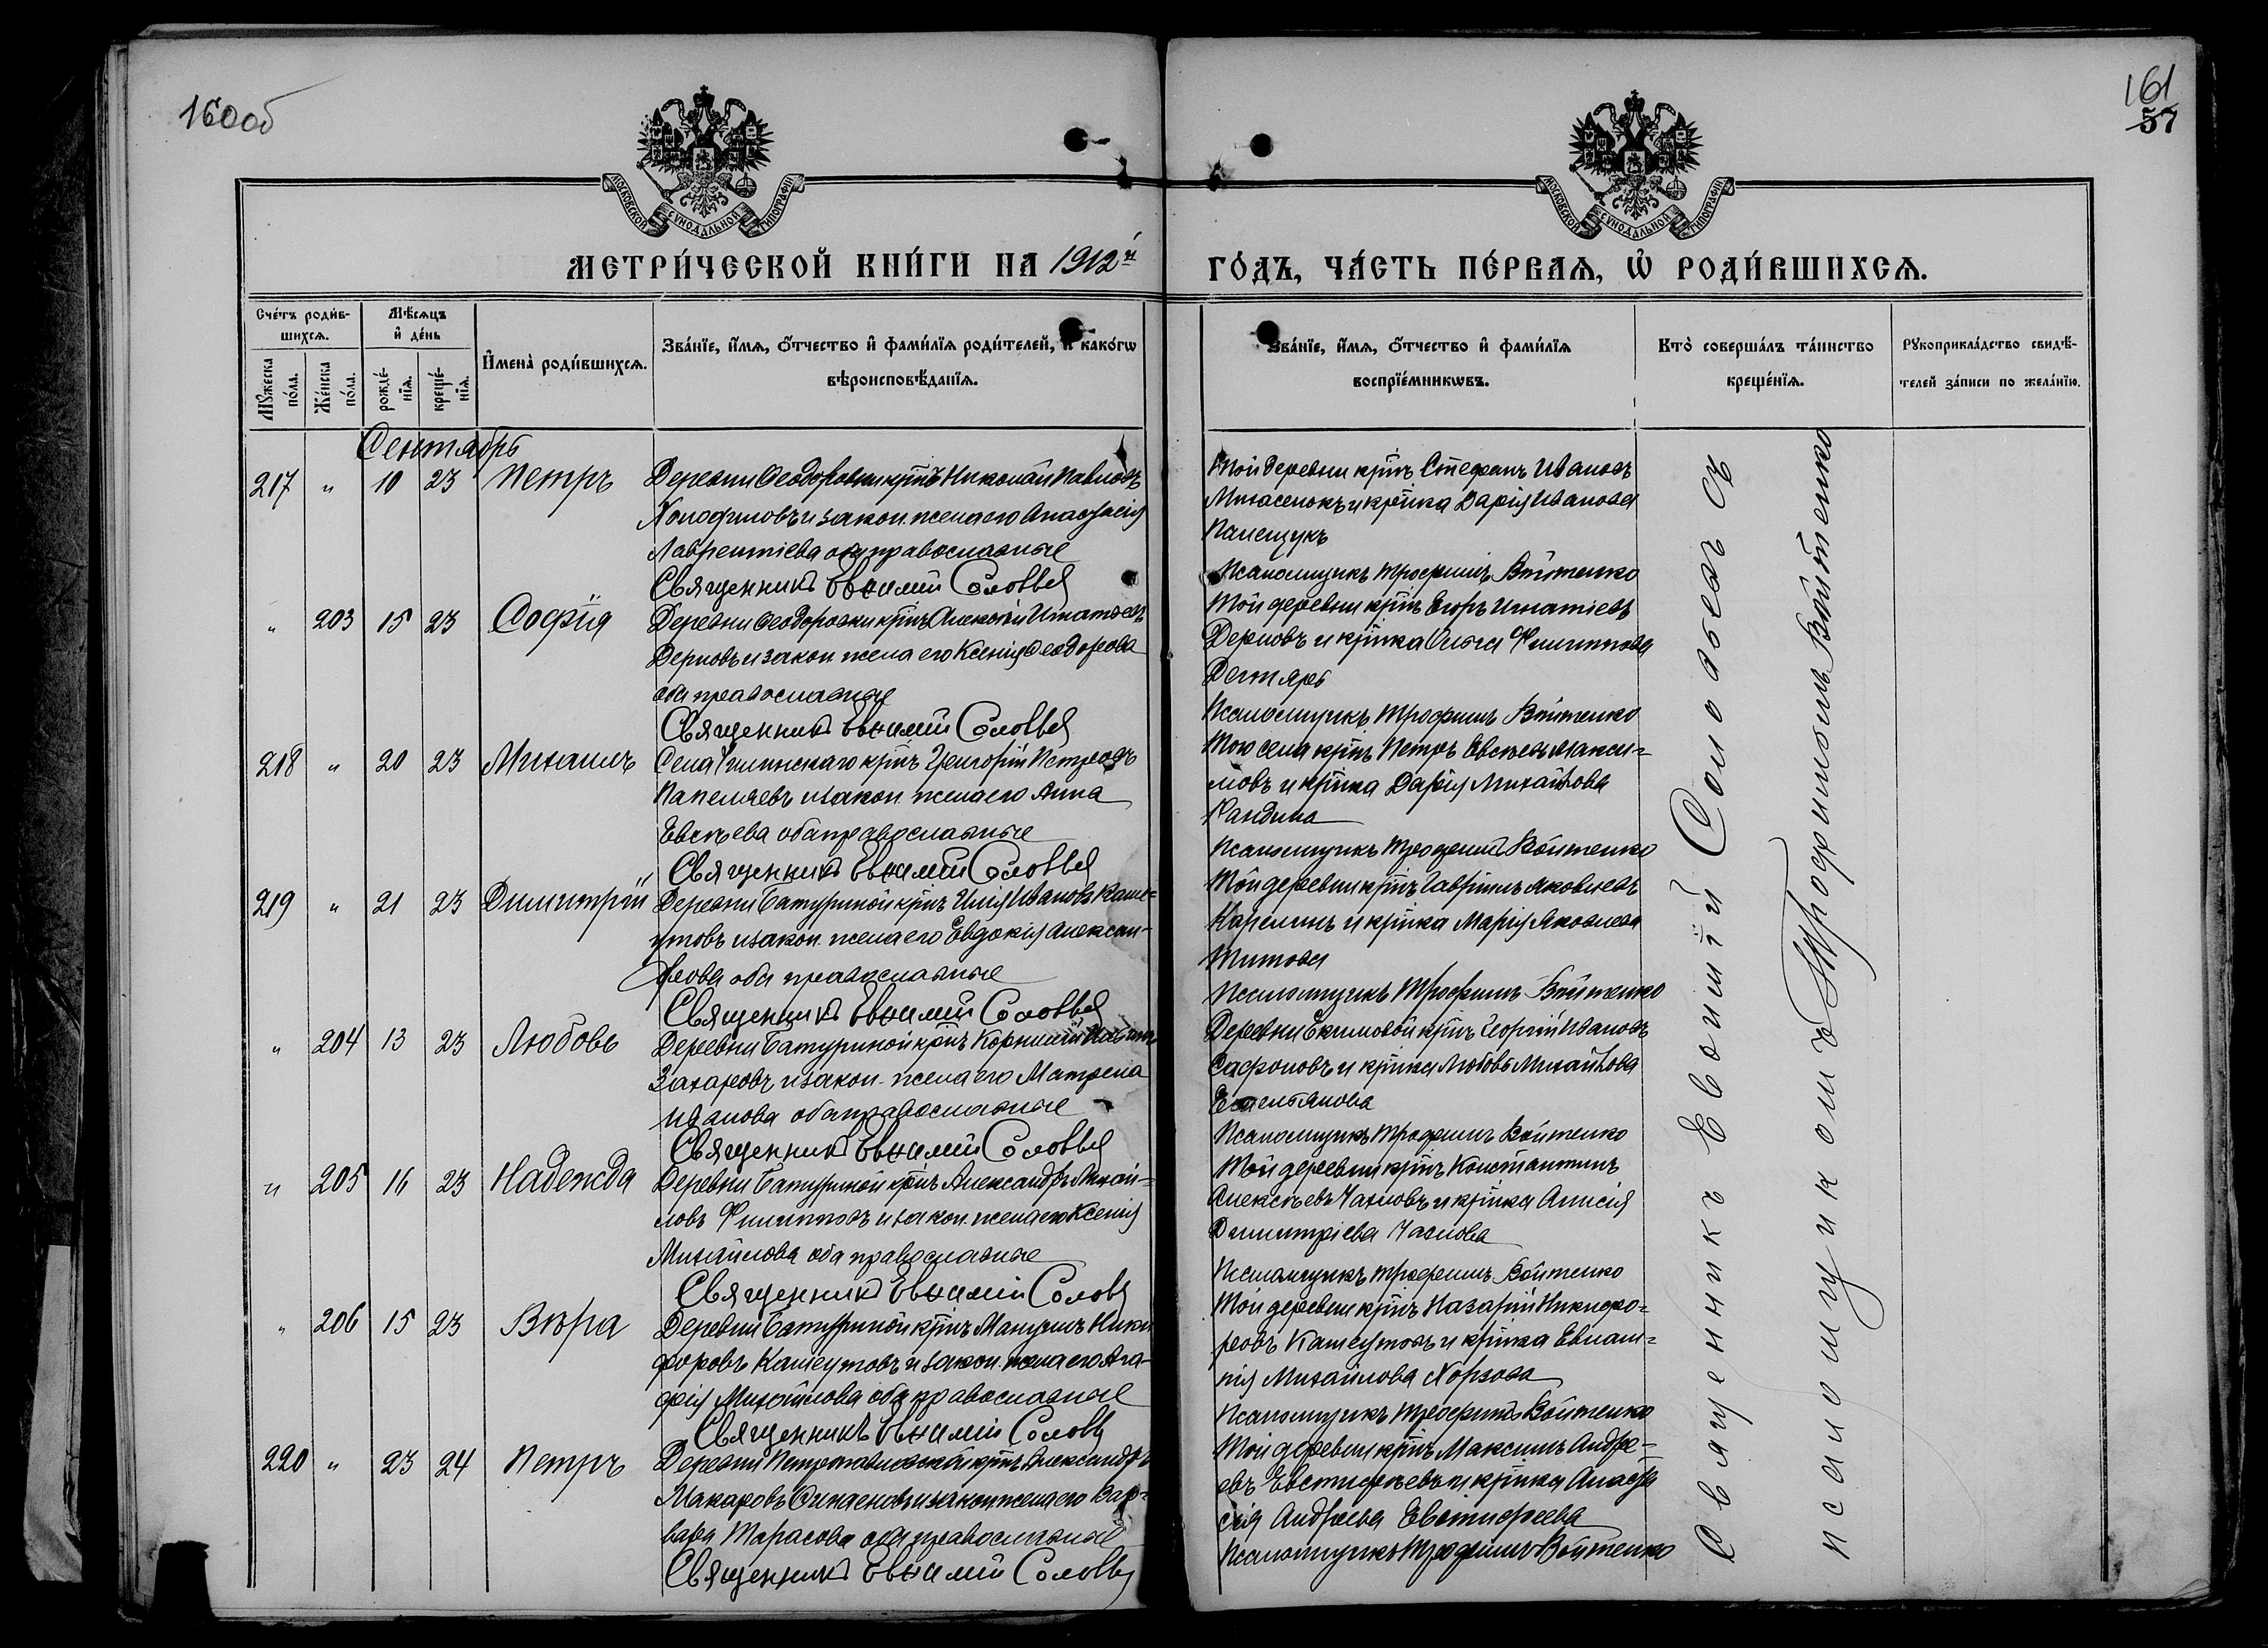 160об
161
57
МОСКОВСКОЙ СУНОДАЛЬНОЙ ТИПОГРАФІИ
МОСКОВСКОЙ СУНОДАЛЬНОЙ ТИПОГРАФІИ
МЕТРИ́ЧЕСКОЙ КНИ́ГИ НА 1912й
ГО́ДЪ, ЧА́СТЬ ПЕ́РВАѦ, Ѡ҆ РОДИ́ВШИХСѦ.
Сче́тъ роди́в-
шихсѧ.
Мѣсѧцъ
и҆ де́нь
Мꙋжеска по́ла.
Же́нска по́ла.
рожде́-
нїѧ.
креще́-
нїѧ.
И҆мена̀ роди́вшихсѧ.
Зва́нїе, и҆́мѧ, ѻ҆́тчество и҆ фами́лїѧ роди́телей, и҆ како́гѡ
вѣроисповѣ́данїѧ.
Зва́нїе, и҆́мѧ, ѻ҆́тчество и҆ фами́лїѧ
воспрїе́мникѡвъ.
Кто̀ соверша́лъ та́инство
креще́нїѧ.
Рꙋкоприкла́дство свидѣ́-
телей за́писи по жела́нїю.
Сентябрь
217 " 10 23 Петръ
Деревни Ѳеодоровки крнъ Николай Павловъ
и закон. жена его Анастасія
Лаврентіева оба православные
Священникъ Евѳимій Соловьев
Той деревни крнъ Стефанъ Ивановъ
и крнка Дарія Иванова
Панещукъ
Псаломщикъ Трофимъ Войтенко
" 203 15 23 Софія
Деревни Ѳеодоровки крнъ Алексѣй Игнатьевъ
Дерновъ и закон. жена его Ксенія Ѳеодорова
оба православные
Священникъ Евѳимій Соловьев
Той деревни крнъ Егоръ Игнатіевъ
Дерновъ и крнка Ольга Филиппова
Дегтярь
Псаломщикъ Трофимъ Войтенко
218 " 20 23 Михаилъ
Села крнъ Григорій Петровъ
Папеляевъ и закон. жена его Анна
Евсѣева оба православные
Священникъ Евѳимій Соловьев
Того села крнъ Петръ Евсѣевъ Макси=
мовъ и крнка Дарія Михайлова
Кандина
Псаломщикъ Трофимъ Войтенко
219 " 21 23 Димитрій
Деревни Батуриной крнъ Илія Ивановъ Каше=
утовъ и закон. жена его Евдокія Алексан-
дрова оба православные
Священникъ Евѳимій Соловьев
Той деревни крнъ Гавріилъ Яковлевъ
Карелинъ и крнка Марія Яковлева
Титова
Псаломщикъ Трофимъ Войтенко
" 204 13 23 Любовь
Деревни Батуриной крнъ Корнилій
Захаровъ и закон. жена его Матрена
Иванова оба православные
Священникъ Евѳимій Соловьев
Деревни Екимовой крнъ Георгій Ивановъ
Сафоновъ и крнка Любовь Михайлова
Емельянова
Псаломщикъ Трофимъ Войтенко
" 205 16 23 Надежда
Деревни Батуриной крнъ Александръ Михай=
ловъ Филипповъ и закон. жена его Ксенія
Михайлова оба православные
Священникъ Евѳимій Соловьев
Той деревни крнъ Константинъ
Алексѣевъ Чахловъ и крнка Анисія
Димитріева Чахлова
Псаломщикъ Трофимъ Войтенко
" 206 15 23 Вѣра
Деревни Батуриной крнъ Мануилъ Ники
форовъ Кашеутовъ и закон. жена его Ага-
фія Михайлова оба православные
Священникъ Евѳимій Соловьев
Той деревни крнъ Назарій Никифо=
ровъ Кашеутовъ и крнка Евлам=
пія Михайлова Хорзова
Псаломщикъ Трофимъ Войтенко
220 " 23 24 Петръ
Деревни Петропавловской крнъ Александръ
Макаровъ и закон. жена его Вар=
вара Тарасова оба православные
Священникъ Евѳимій Соловьев
Той деревни крнъ Максимъ Андре=
евъ Евстифѣевъ и крнка Анаста
сія Андреева Евстифеева
Псаломщикъ Трофимъ Войтенко
Священникъ Евѳимій Соловьевъ съ
псаломщикомъ Трофимомъ Войтенко